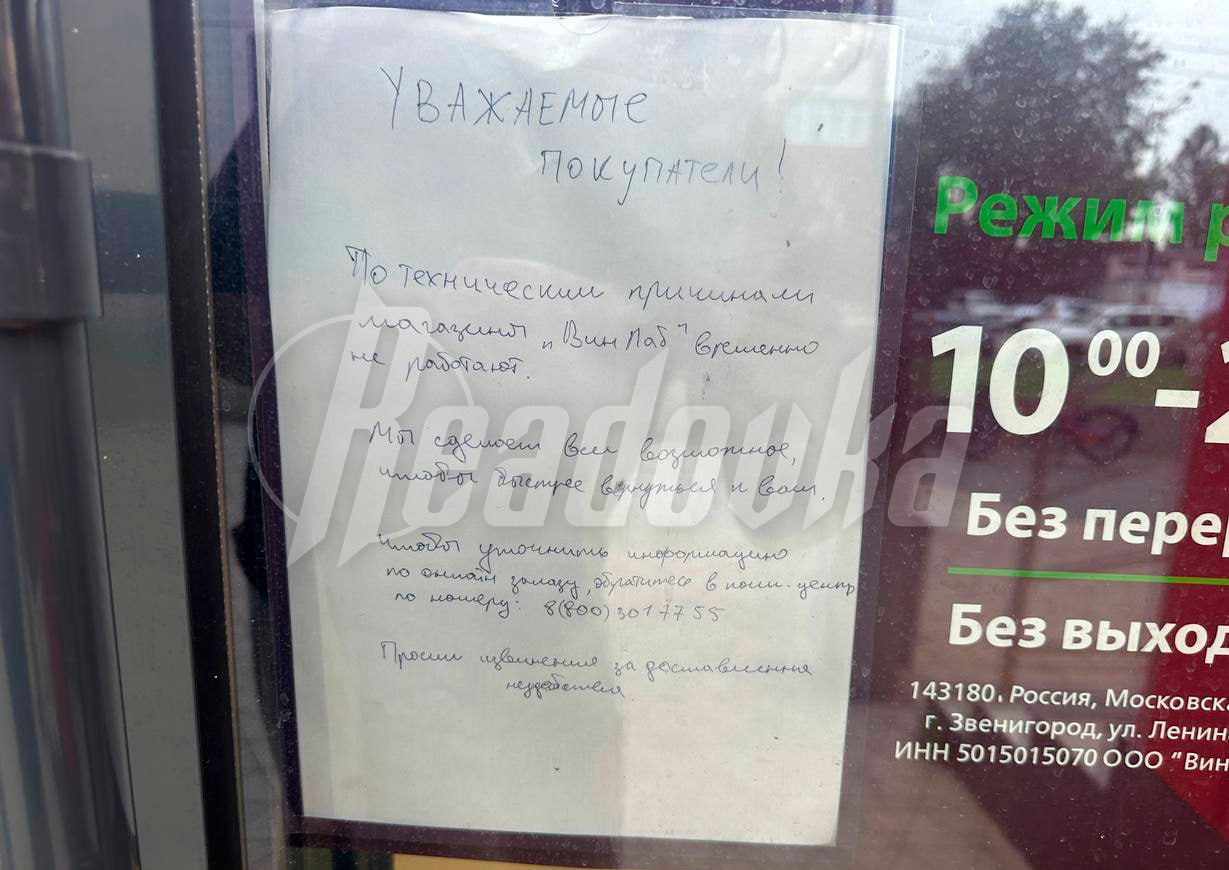 Уважаемые
покупатели!
По техническим причинам
магазины "ВинЛаб" временно
не работают.
Мы сделаем все возможное,
чтобы быстрее вернуться к вам.
Чтобы уточнить информацию
по онлайн заказу, обратитесь в колл-центр
по номеру: 8(800)3017755
Просим извинения за доставленные
неудобства.
Readovka
Режим р
10 00 -
Без пере
Без выход
143180, Россия, Московска
г. Звенигород, ул. Ленина
ИНН 5015015070 ООО "Вин